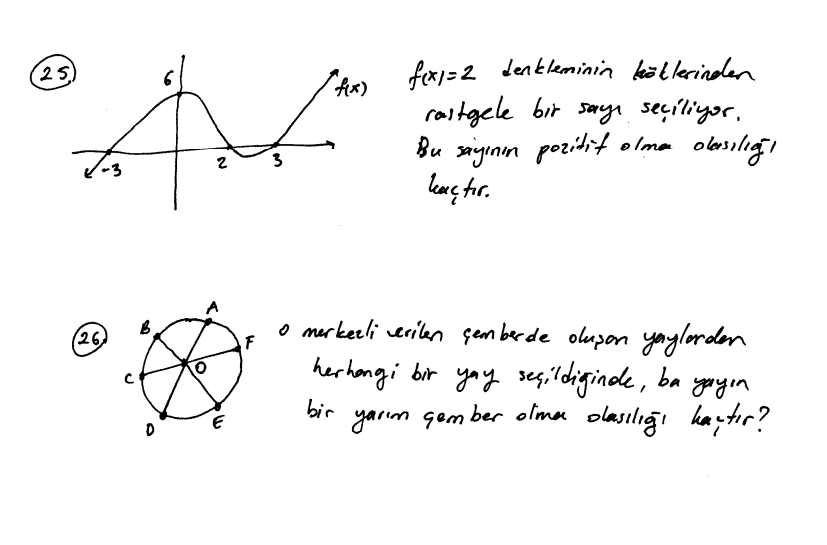 25.
6
f(x)
-3
2
3
f(x)=2 denkleminin köklerinden
rastgele bir sayı seçiliyor.
Bu sayının pozitif olma olasılığı
kaçtır.
26.
A
B
F
O
C
D
E
O merkezli verilen çemberde oluşan yaylardan
herhangi bir yay seçildiğinde, bu yayın
bir yarım çember olma olasılığı kaçtır?